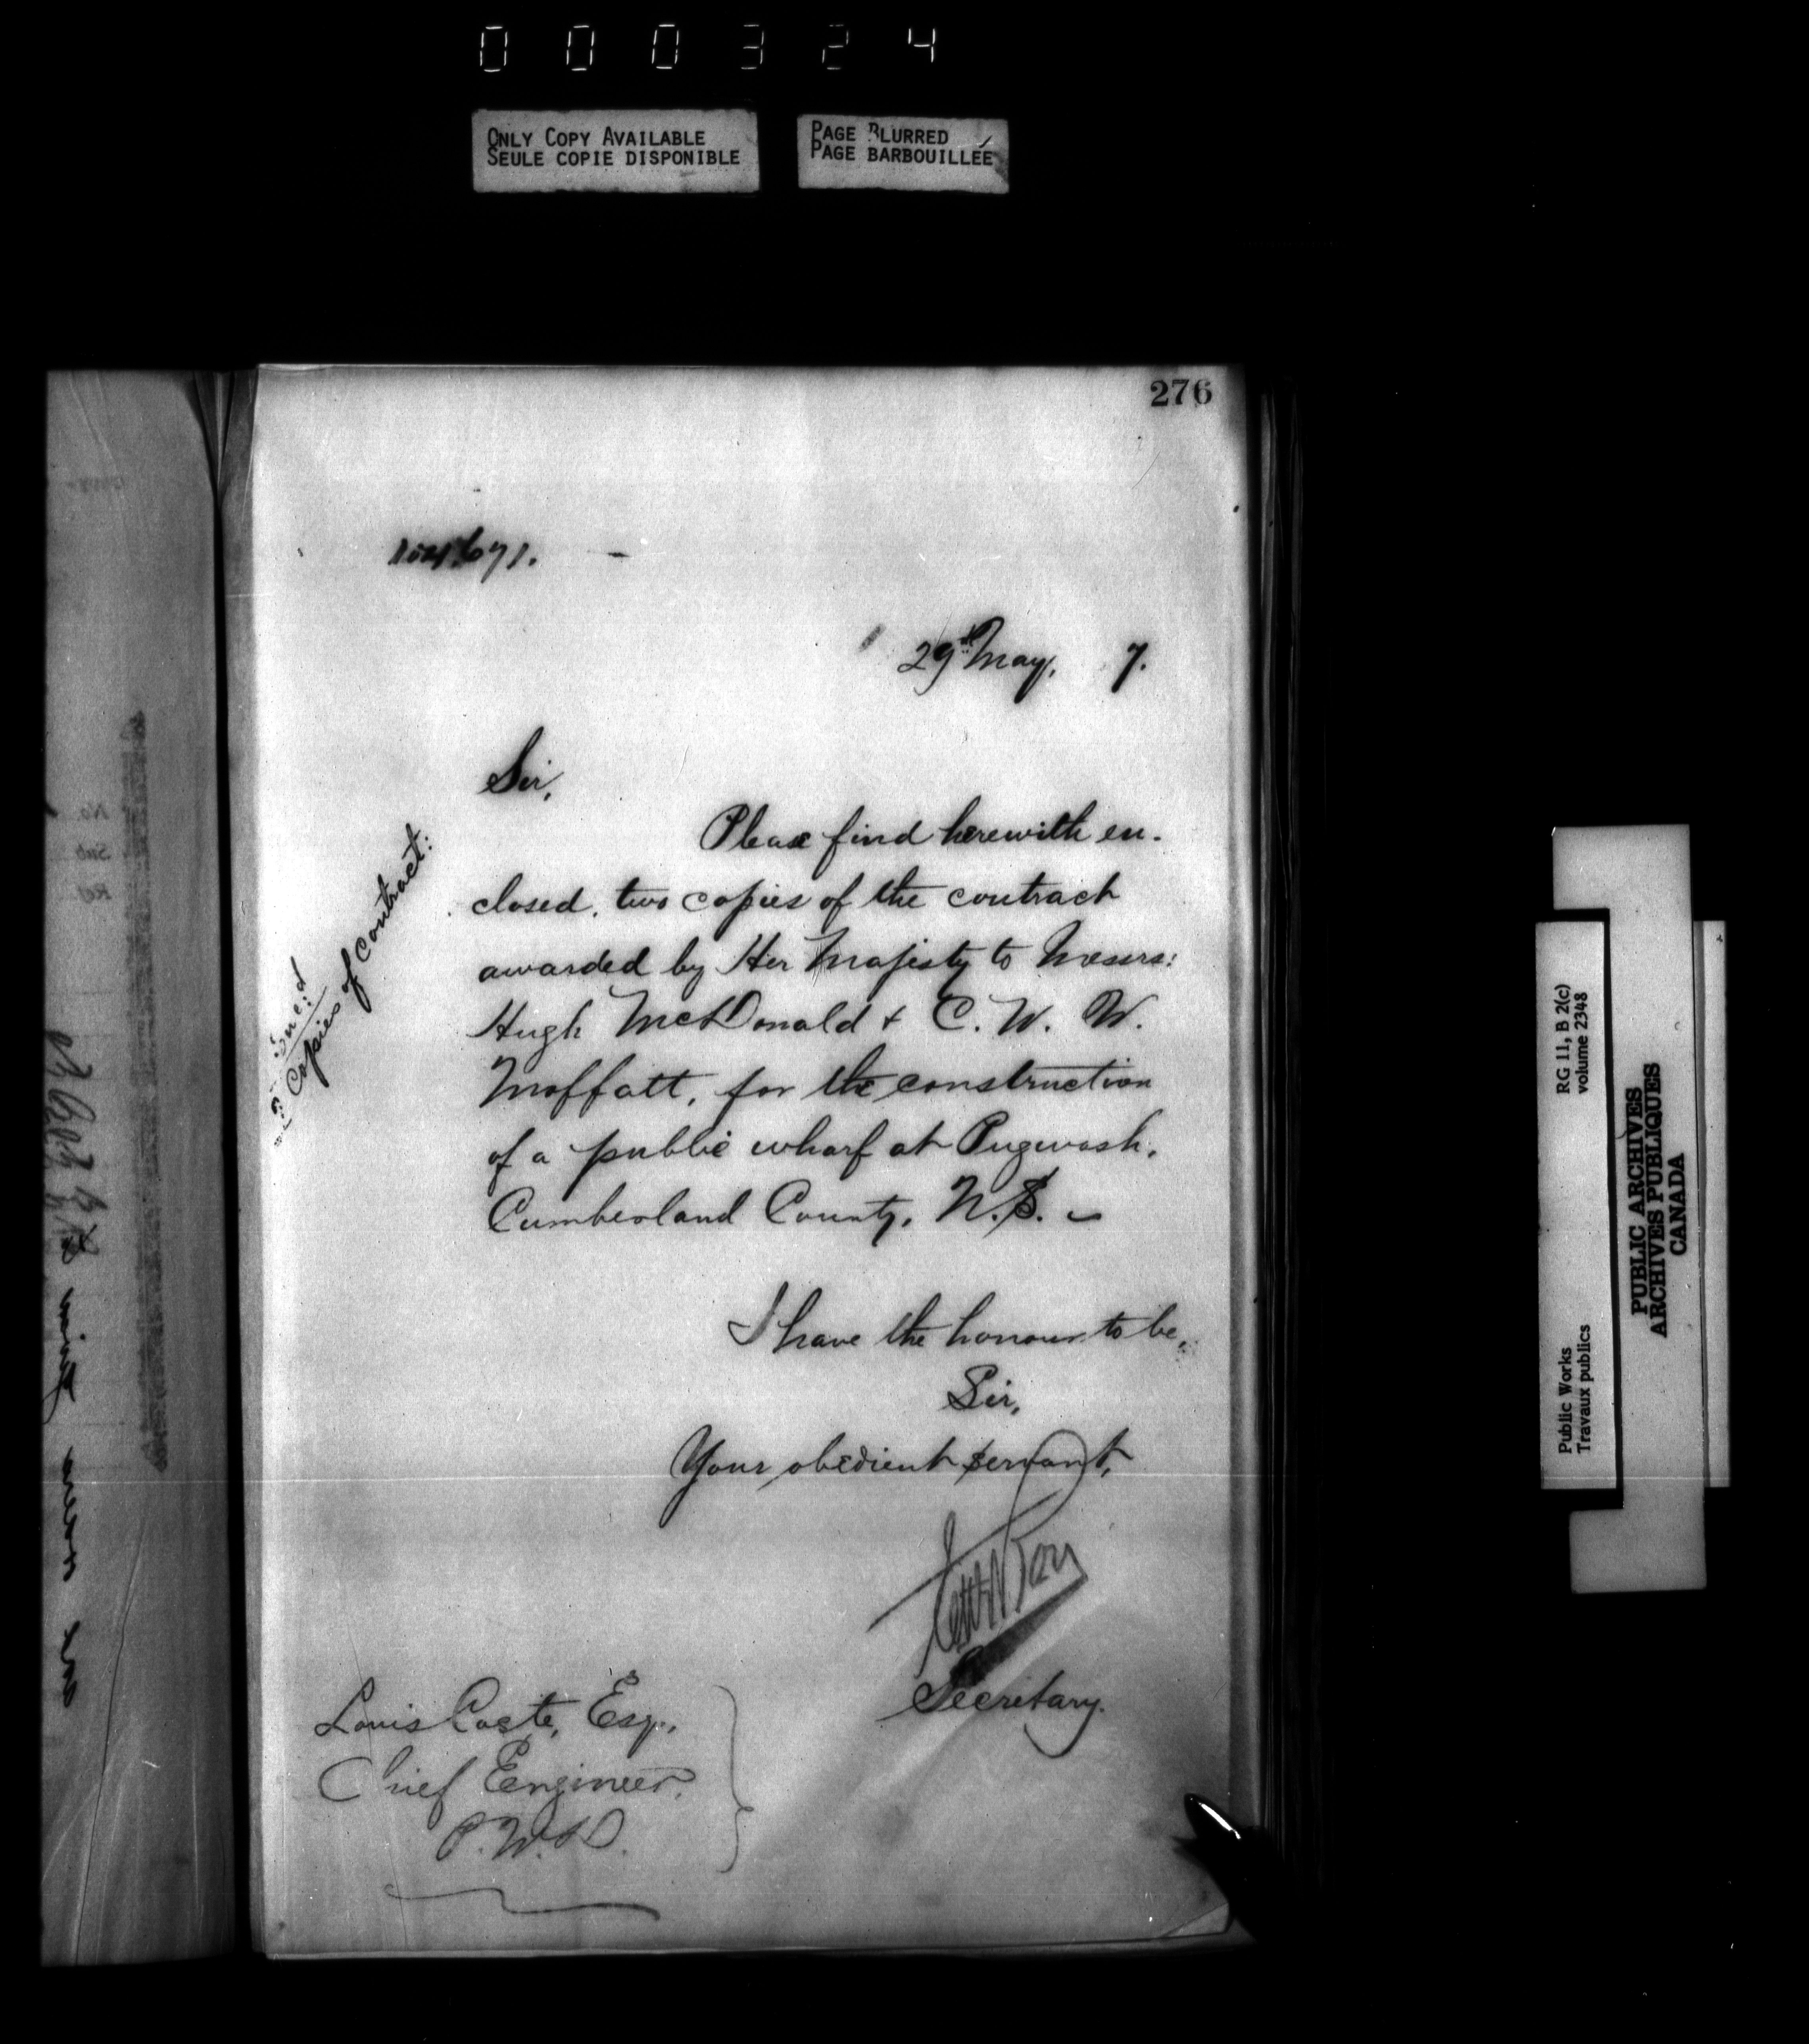 000324
ONLY COPY AVAILABLE
SEULE COPIE DISPONIBLE
PAGE BLURRED
PAGE BARBOUILLÉE
276
29th May, 7.
Sir,
Please find herewith en-
closed, two copies of the contract
awarded by Her Majesty to Messrs:
Hugh McDonald & C. W. W.
Moffatt, for the construction
of a public wharf at Pugwash,
Cumberland County, N.S.
2 Enc:d
Copies of Contract:
I have the honour to be,
Sir,
Your obedient servant,
Roy
Secretary.
Louis Coste, Esq.,
Chief Engineer,
P.W.D.
RG 11, B 2(c)
volume 2348
Public Works
Travaux publics
PUBLIC ARCHIVES
ARCHIVES PUBLIQUES
CANADA